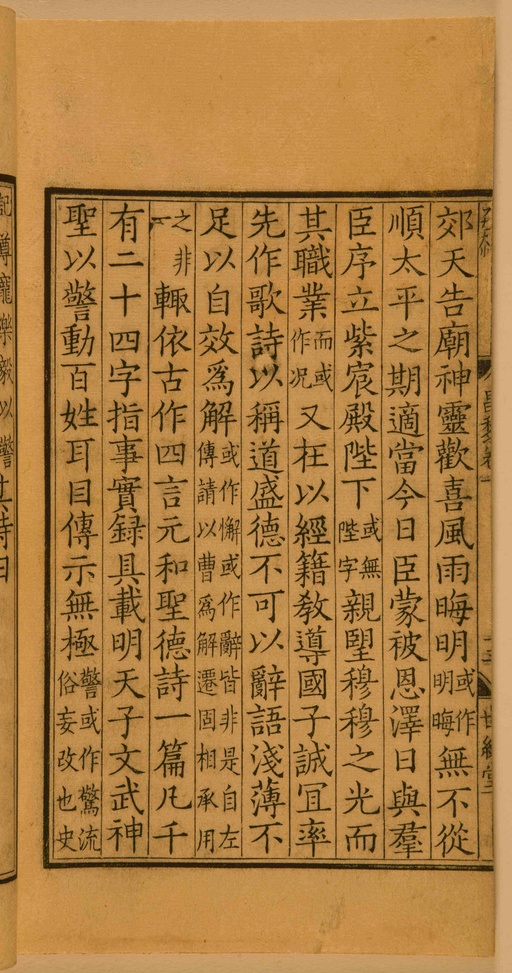 郊天告廟神靈歡喜風雨晦明或作明晦無不從
順太平之期適當今日臣蒙被恩澤日與羣
臣序立紫宸殿陛下或無陛字親朢穆穆之光而
其職業而或作况又在以經籍敎導國子誠宜率
先作歌詩以稱道盛德不可以辭語淺薄不
足以自效爲解或作懈或作辭皆非是自左傳請以曹爲解遷固相承用
之非一輙依古作四言元和聖德詩一篇凡千
有二十四字指事實録具載明天子文武神
聖以警動百姓耳目傳示無極警或作驚流俗妄改也史
記尊寵樂毅以警其詩曰